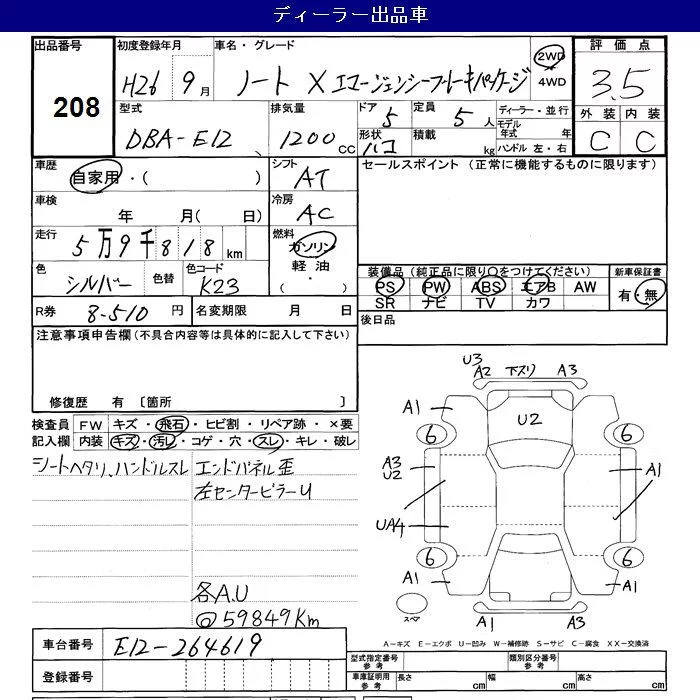 ディーラー出品車
出品番号 初度登録年月 車名・グレード 2WD 4WD 評価点
208 H26 9月 ノート X エマージェンシーブレーキパッケージ 3.5
型式 排気量 ドア 定員 ディーラー・並行 外装 内装
DBA-E12 1200cc 5 5人 モデル年式 年 C C
形状 ハコ 積載 kg ハンドル 左・右
車歴 自家用・( ) シフト AT セールスポイント(正常に機能するものに限ります)
車検 年 月( 日) 冷房 AC
走行 5万9千818km 燃料 ガソリン
軽油
・( )
色 シルバー 色替 色コード K23
装備品(純正品に限り○をつけてください) 新車保証書
PS PW ABS エアB AW 有・無
SR ナビ TV カワ
R券 8-510円 名変期限 月 日 後日品
注意事項申告欄(不具合内容等は具体的に記入して下さい)
修復歴 有 〔箇所 〕
検査員記入欄 FW キズ・飛石・ヒビ割・リペア跡・×要
内装 キズ・汚レ・コゲ・穴・スレ・キレ・破レ
シートヘタリ、ハンドルスレ
エンドパネル歪
左センターピラーU
各A.U
◎59849Km
U3
A2 下スリ A3
A1 U2
6 6
A3 A1
U2
UA4
6 6
A1 A1
スペア A1 A3
A－キズ E－エクボ U－凹み W－補修跡 S－サビ C－腐食 XX－交換済
車台番号 E12-264619
登録番号
型式指定番号 参考 類別区分番号 参考
車庫証明用 参考 長さ cm 幅 cm 高さ cm